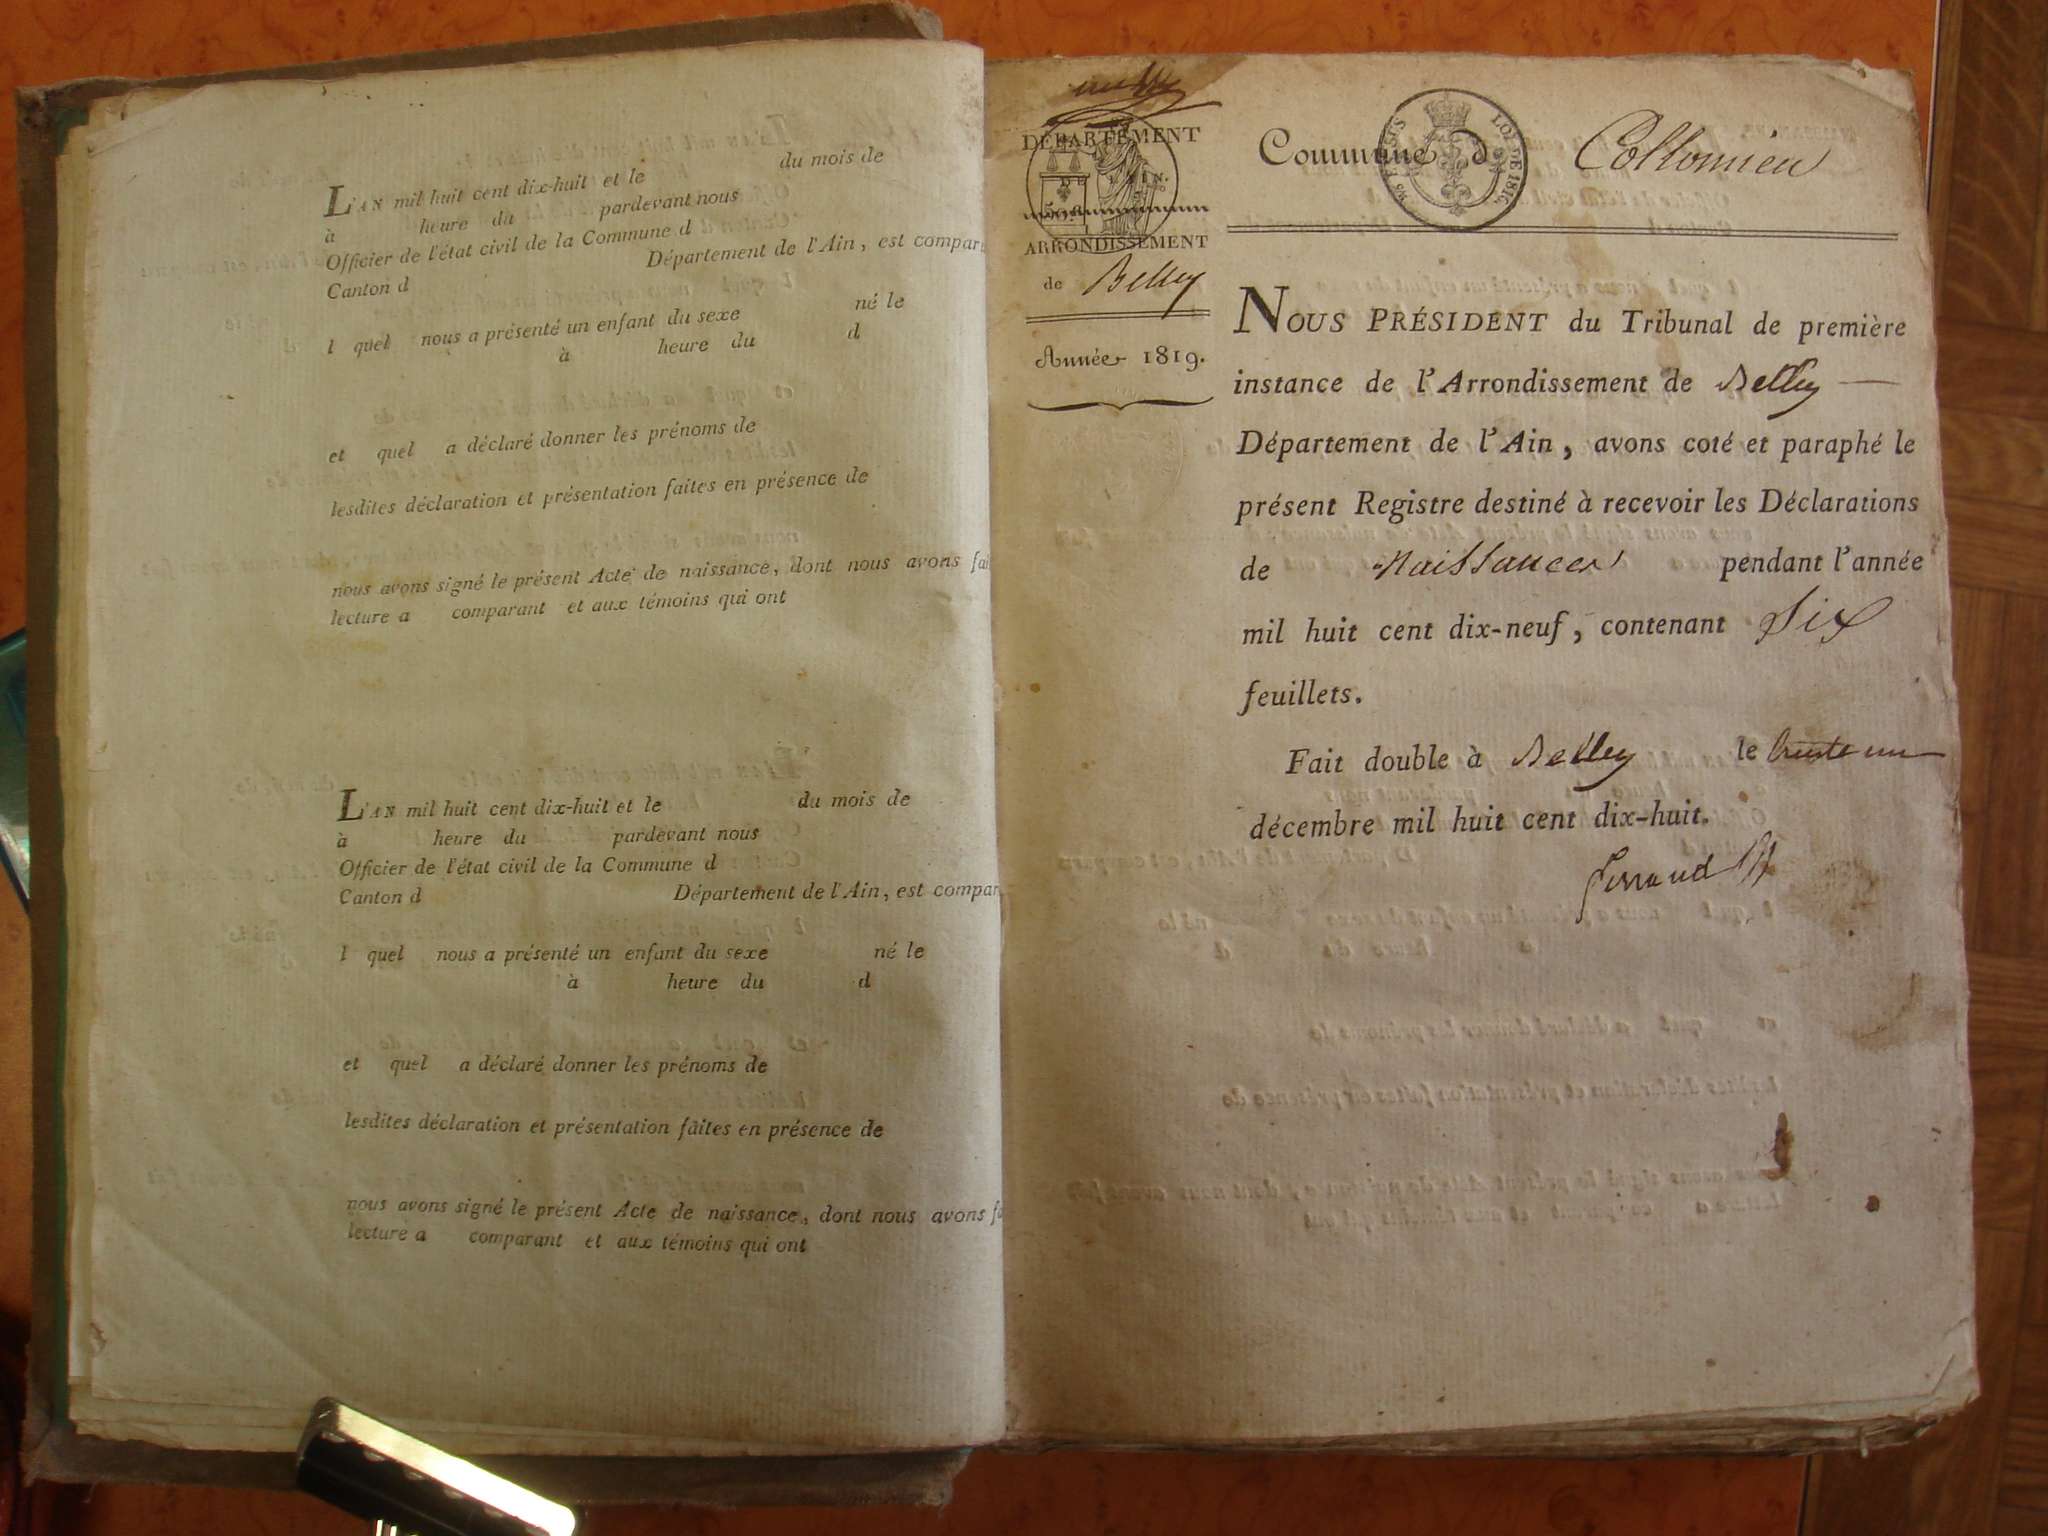 L'AN mil huit cent dix-huit et le du mois de
à heure du pardevant nous
Officier de l'état civil de la Commune d
Canton d Département de l'Ain, est compar
l quel nous a présenté un enfant du sexe né le
à heure du d
et quel a déclaré donner les prénoms de
lesdites déclaration et présentation faites en présence de
nous avons signé le présent Acte de naissance, dont nous avons fai
lecture a comparant et aux témoins qui ont
L'AN mil huit cent dix-huit et le du mois de
à heure du pardevant nous
Officier de l'état civil de la Commune d
Canton d Département de l'Ain, est compar
l quel nous a présenté un enfant du sexe né le
à heure du d
et quel a déclaré donner les prénoms de
lesdites déclaration et présentation faites en présence de
nous avons signé le présent Acte de naissance, dont nous avons fa
lecture a comparant et aux témoins qui ont
DÉPARTEMENT
DE L'AIN.
ARRONDISSEMENT
de Belley
Année 1819.
Commune d Collomieu
LOI DE 1816.
NOUS PRÉSIDENT du Tribunal de première
instance de l'Arrondissement de Belley
Département de l'Ain, avons coté et paraphé le
présent Registre destiné à recevoir les Déclarations
de Naissances pendant l'année
mil huit cent dix-neuf, contenant Six
feuillets.
Fait double à Belley le trente un
décembre mil huit cent dix-huit.